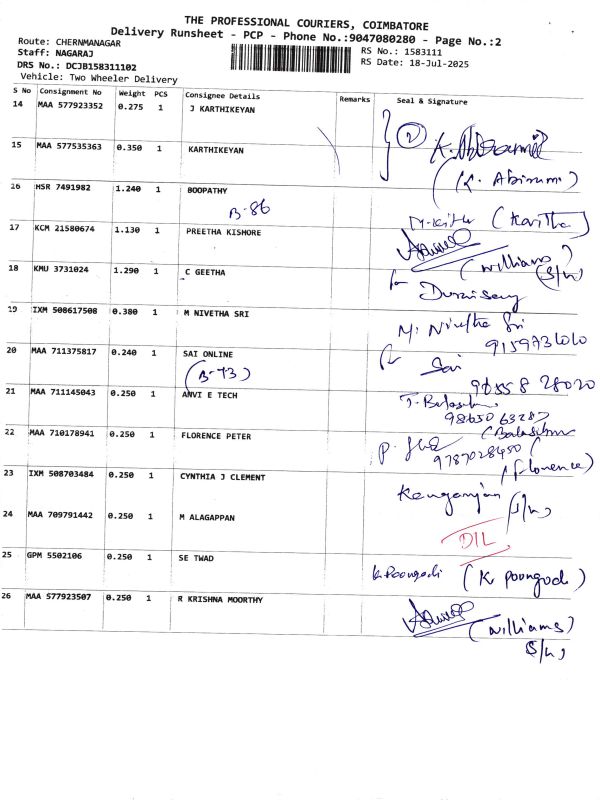 THE PROFESSIONAL COURIERS, COIMBATORE
Delivery Runsheet - PCP - Phone No.:9047080280 - Page No.:2
Route: CHERNMANAGAR
Staff: NAGARAJ
DRS No.: DCJB158311102
Vehicle: Two Wheeler Delivery
RS No.: 1583111
RS Date: 18-Jul-2025
S No Consignment No Weight PCS Consignee Details Remarks Seal & Signature
14 MAA 577923352 0.275 1 J KARTHIKEYAN
2
15 MAA 577535363 0.350 1 KARTHIKEYAN
(K. Abirami)
16 HSR 7491982 1.240 1 BOOPATHY
B-86
(Kavitha)
17 KCM 21580674 1.130 1 PREETHA KISHORE
(williams)
S/w
18 KMU 3731024 1.290 1 C GEETHA
for Duraisamy
19 IXM 508617508 0.380 1 M NIVETHA SRI
M. Nivetha Sri
9159731010
20 MAA 711375817 0.240 1 SAI ONLINE
(B-73)
for Sai
90558 28020
21 MAA 711145043 0.250 1 ANVI E TECH
98650 63287
22 MAA 710178941 0.250 1 FLORENCE PETER
9787028450
(florence)
23 IXM 508703484 0.250 1 CYNTHIA J CLEMENT
S/w
24 MAA 709791442 0.250 1 M ALAGAPPAN
DIL
25 GPM 5502106 0.250 1 SE TWAD
K. Poongodi (K poongodi)
26 MAA 577923507 0.250 1 R KRISHNA MOORTHY
(williams)
S/w